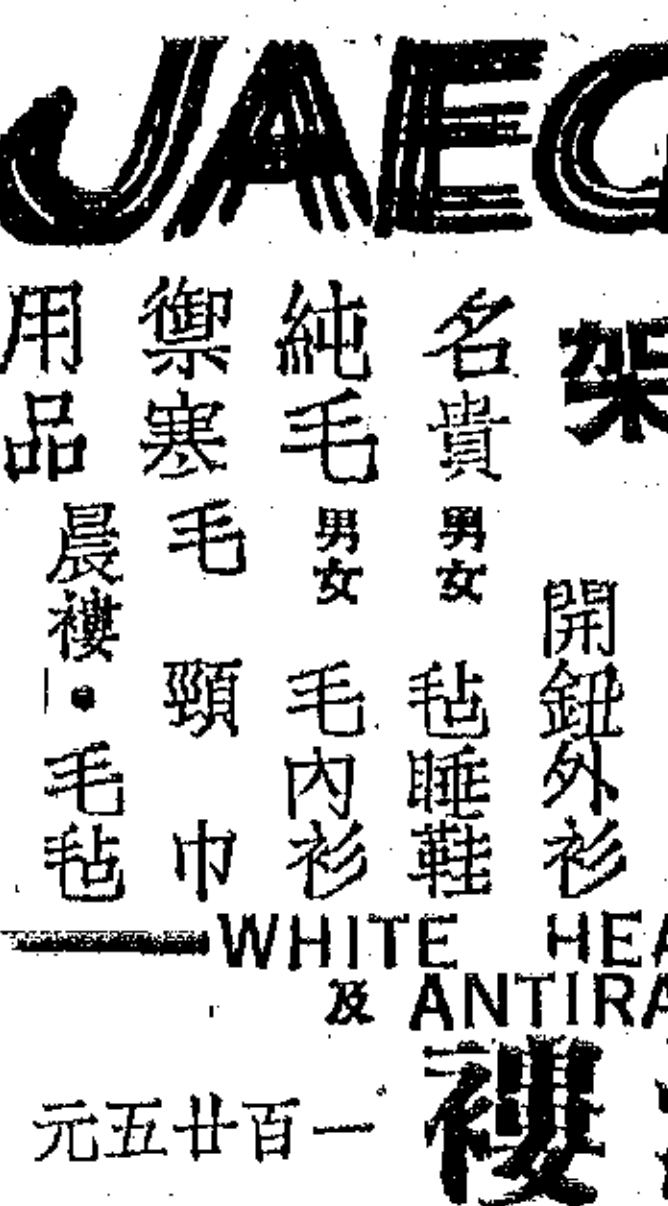 JAEG
架
名貴
純毛
禦寒
用品
開鈕外衫
男女毡睡鞋
男女毛內衫
毛頸巾
晨褸•毛毡
WHITE HEA
及 ANTIRA
褸
一百廿五元